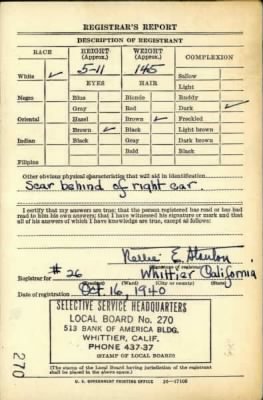 REGISTRAR'S REPORT
DESCRIPTION OF REGISTRANT
RACE HEIGHT (Approx.) WEIGHT (Approx.) COMPLEXION
5-11 145
White ✓ EYES HAIR Sallow
Light
Negro Blue Blonde Ruddy
Gray Red Dark ✓
Oriental Hazel Brown ✓ Freckled
Brown ✓ Black Light brown
Indian Black Gray Dark brown
Bald Black
Filipino
Other obvious physical characteristics that will aid in identification
Scar behind of right ear.
I certify that my answers are true; that the person registered has read or has had read to him his own answers; that I have witnessed his signature or mark and that all of his answers of which I have knowledge are true, except as follows:
E.
(Signature of registrar)
Registrar for # 26 Whittier California
(Precinct) (Ward) (City or county) (State)
Date of registration Oct. 16, 1940
SELECTIVE SERVICE HEADQUARTERS
LOCAL BOARD No. 270
513 BANK OF AMERICA BLDG.
WHITTIER, CALIF.
PHONE 437-37
(STAMP OF LOCAL BOARD)
(The stamp of the Local Board having jurisdiction of the registrant shall be placed in the above space.)
U. S. GOVERNMENT PRINTING OFFICE 16-17105
270